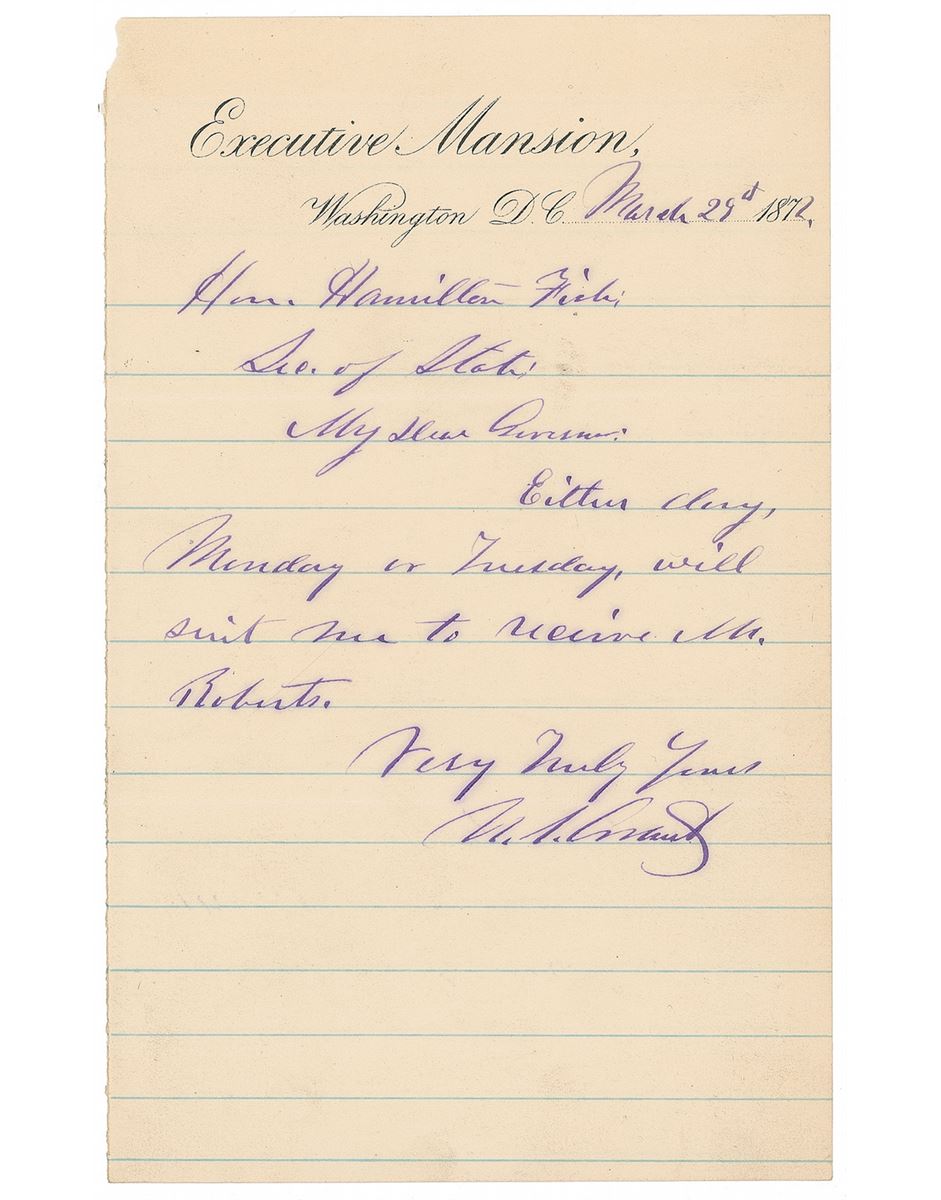 Executive Mansion,
Washington D.C. March 29th 1872.
Hon. Hamilton Fish;
Sec. of State;
My Dear Governor:
Either day,
Monday or Tuesday, will
suit me to receive Mr.
Roberts.
Very Truly Yours
U. S. Grant